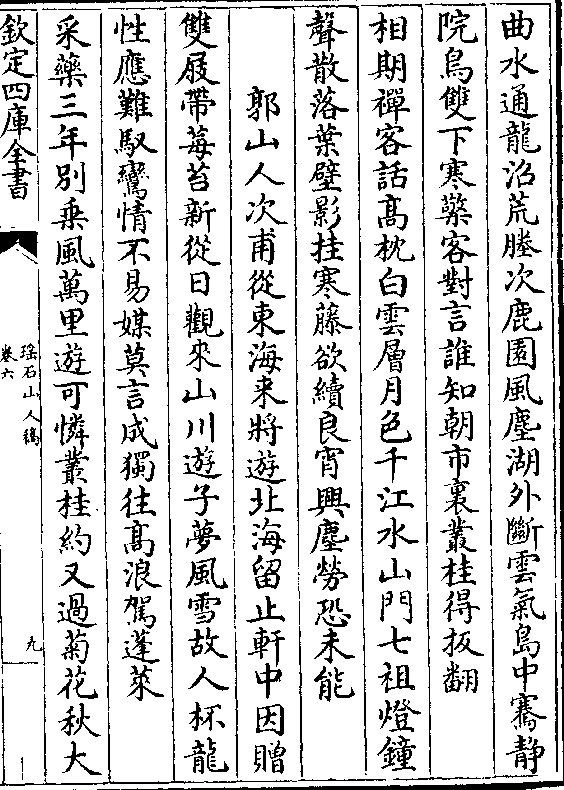 曲水通龍沼荒塍次鹿園風塵湖外斷雲氣島中騫靜
院鳥雙下寒蘂客對言誰知朝市裏叢桂得扳翻
相期禪客話髙枕白雲層月色千江水山門七祖燈鐘
聲散落葉壁影挂寒藤欲續良宵興塵勞恐未能
郭山人次甫從東海来將遊北海留止軒中因贈
雙屐帶莓苔新從日觀來山川遊子夢風雪故人杯龍
性應難馭鸞情不易媒莫言成獨往髙浪駕蓬萊
采藥三年別乗風萬里遊可憐叢桂約又過菊花秋大
欽定四庫全書
瑶石山人稿
卷六
九